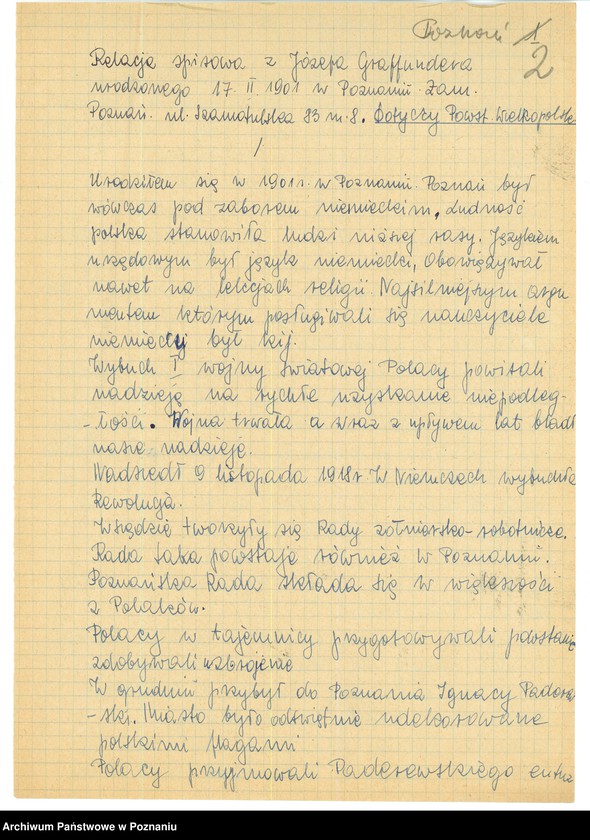 Poznań 1
2
Relacja spisowa z Józefa Graffundera
urodzonego 17. II 1901 w Poznaniu. Zam.
Poznań. ul. Szamotulska 83 m. 8. Dotyczy Powst. Wielkopolski
/
Urodziłem się w 1901 r. w Poznaniu. Poznań był
wówczas pod zaborem niemieckim. Ludność
polska stanowiła ludzi niższej rasy. Językiem
urzędowym był język niemiecki, Obowiązywał
nawet na lekcjach religii Najsilniejszym argu
mentem którym posługiwali się nauczyciele
niemieccy był kij.
Wybuch I wojny światowej Polacy powitali
nadzieją na rychłe uzyskanie niepodleg-
-łości. Wojna trwała a wraz z upływem lat bladł
nasze nadzieje.
Nadszedł 9 listopada 1918 r. W Niemczech wybuchła
Rewolucja.
Wszędzie tworzyły się Rady żołniersko-robotnicze.
Rada taka powstaje również w Poznaniu.
Poznańska Rada składa się w większości
z Polaków.
Polacy w tajemnicy przygotowywali powstanie
zdobywali uzbrojenie
W grudniu przybył do Poznania Ignacy Padere
-ski. Miasto było odświętnie udekorowane
polskimi flagami
Polacy przyjmowali Paderewskiego entuz
Archiwum Państwowe w Poznaniu